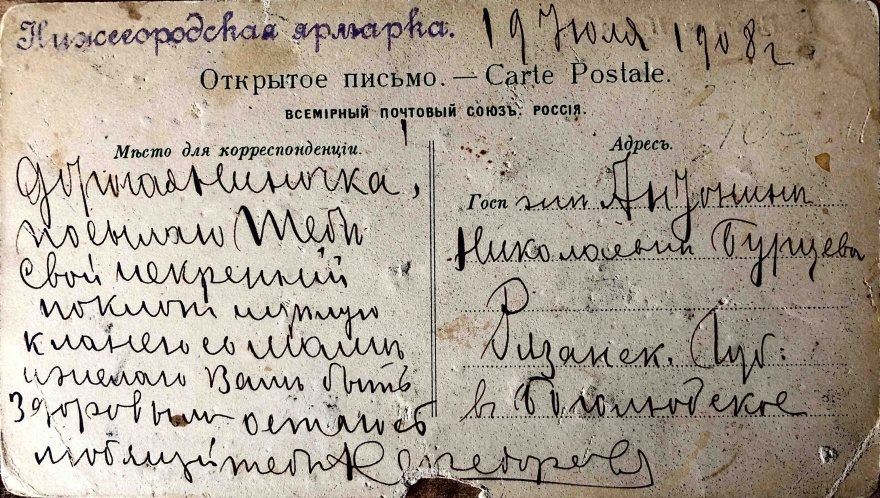 Нижегородская ярмарка. 19 Июля 1908 г
Открытое письмо. — Carte Postale.
ВСЕМІРНЫЙ ПОЧТОВЫЙ СОЮЗЪ. РОССІЯ.
Мѣсто для корреспонденціи.
Дорогая Ниночка,
посылаю Тебѣ
свой искренний
поклон
кланеюсь мамѣ
и желаю Вамъ быть
Здоровым остаюсь
любящий тебя
Адресъ.
Госпжи Антонинѣ
Николаевнѣ Бурцева
Рязанск. Губ:
в Боголюбское